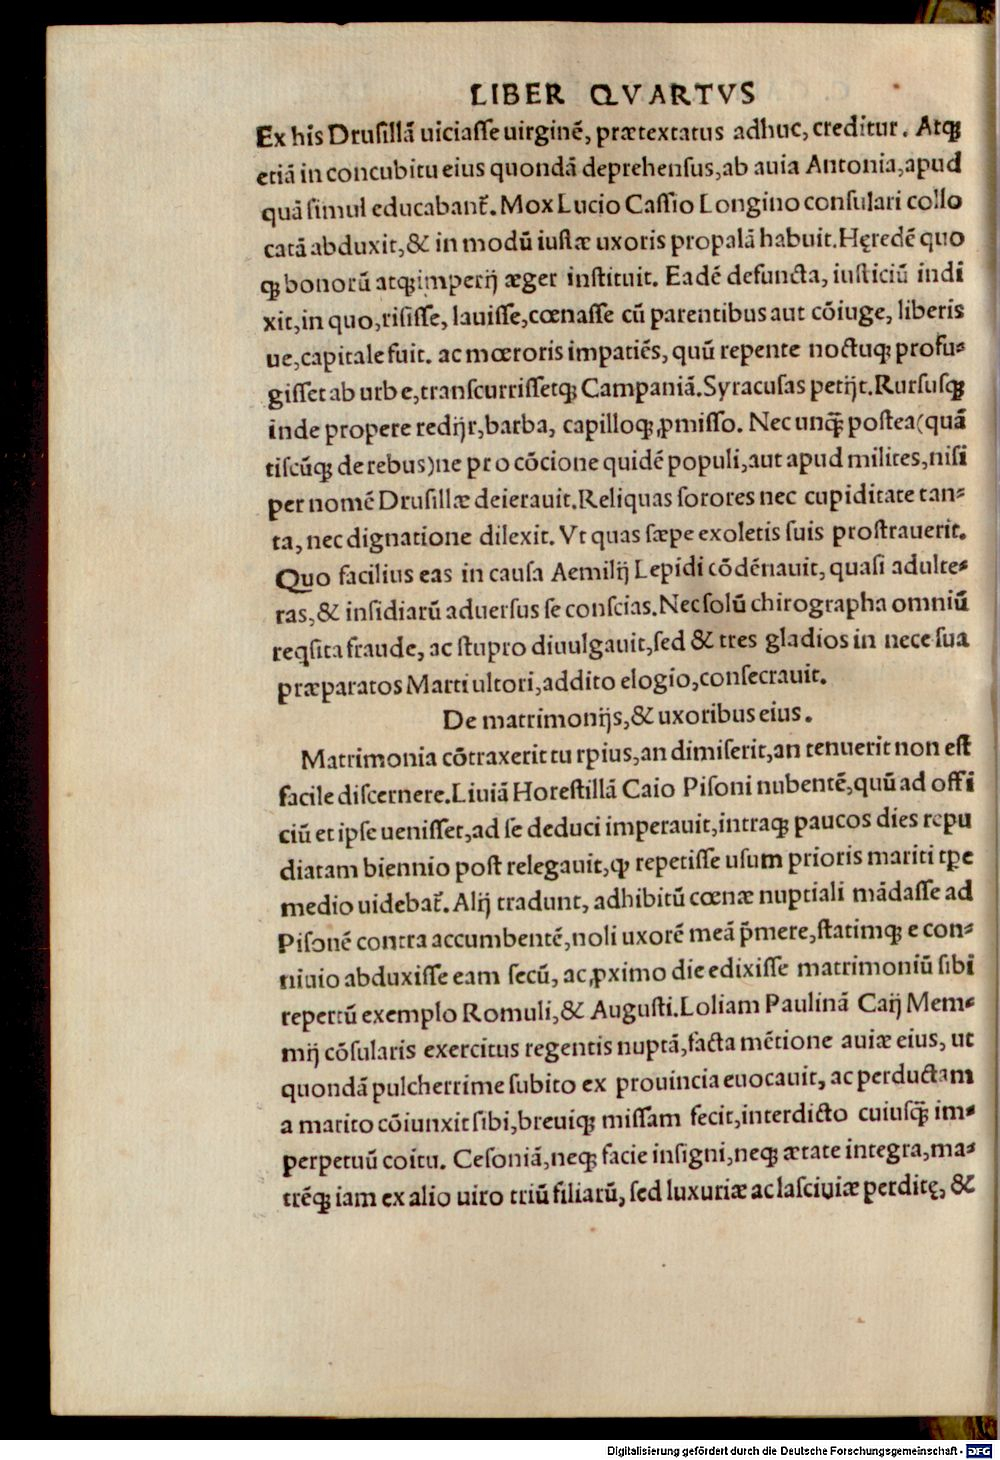 LIBER QVARTVS
Ex his Drusillã uiciasse uirginẽ, prætextatus adhuc, creditur. Atq;
etiã in concubitu eius quondã deprehensus, ab auia Antonia, apud
quã simul educabant̃. Mox Lucio Cassio Longino consulari collo
catã abduxit, & in modũ iustæ uxoris propalã habuit. Hęredẽ quo
q; bonorũ atq; imperij æger instituit. Eadẽ defuncta, iusticiũ indi
xit, in quo, risisse, lauisse, cœnasse cũ parentibus aut cõiuge, liberis
ue, capitale fuit. ac mœroris impatiẽs, quũ repente noctuq; profu-
gisset ab urbe, transcurrissetq; Campaniã. Syracusas petijt. Rursusq;
inde propere redijt, barba, capilloq; ꝓmisso. Nec unq̃ postea (quã
tiscũq; de rebus) ne pro cõcione quidẽ populi, aut apud milites, nisi
per nomẽ Drusillæ deierauit. Reliquas sorores nec cupiditate tan-
ta, nec dignatione dilexit. Vt quas sæpe exoletis suis prostrauerit.
Quo facilius eas in causa Aemilij Lepidi cõdẽnauit, quasi adulte-
ras, & insidiarũ aduersus se conscias. Nec solũ chirographa omniũ
reqsita fraude, ac stupro diuulgauit, sed & tres gladios in nece sua
præparatos Marti ultori, addito elogio, consecrauit.
De matrimonijs, & uxoribus eius.
Matrimonia cõtraxerit turpius, an dimiserit, an tenuerit non est
facile discernere. Liuiã Horestillã Caio Pisoni nubentẽ, quũ ad offi
ciũ et ipse uenisset, ad se deduci imperauit, intraq; paucos dies repu
diatam biennio post relegauit, ꝙ repetisse usum prioris mariti tꝑe
medio uidebat̃. Alij tradunt, adhibitũ cœnæ nuptiali mãdasse ad
Pisonẽ contra accumbentẽ, noli uxorẽ meã p̃mere, statimq; e con-
uiuio abduxisse eam secũ, ac ꝓximo die edixisse matrimoniũ sibi
repertũ exemplo Romuli, & Augusti. Loliam Paulinã Caij Mem-
mij cõsularis exercitus regentis nuptã, facta mẽtione auiæ eius, ut
quondã pulcherrime subito ex prouincia euocauit, ac perductam
a marito cõiunxit sibi, breuiq; missam fecit, interdicto cuiusq̃ im-
perpetuũ coitu. Cesoniã, neq; facie insigni, neq; ætate integra, ma-
trẽq; iam ex alio uiro triũ filiarũ, sed luxuriæ ac lasciuiæ perditę, &
Digitalisierung gefördert durch die Deutsche Forschungsgemeinschaft - DFG